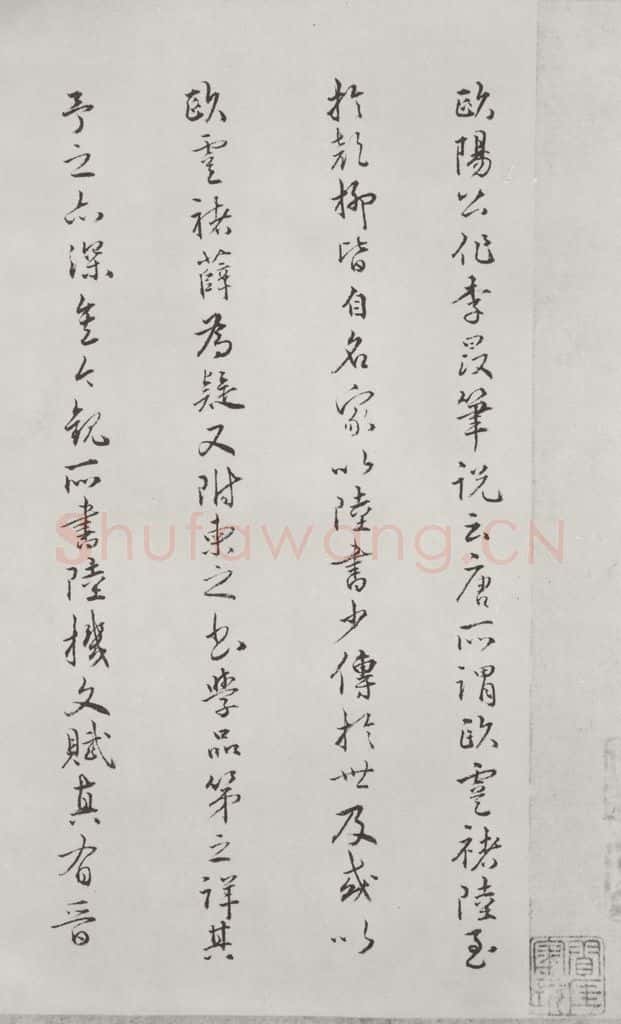 歐陽公作季晸筆説云唐所謂歐虞褚陸至
於顏柳皆自名家以陸書少傳於世及或以
歐虞褚薛為疑又附柬之書學品第之詳其
予之亦深矣今觀所書陸機文賦真有晉
Shufawang.CN